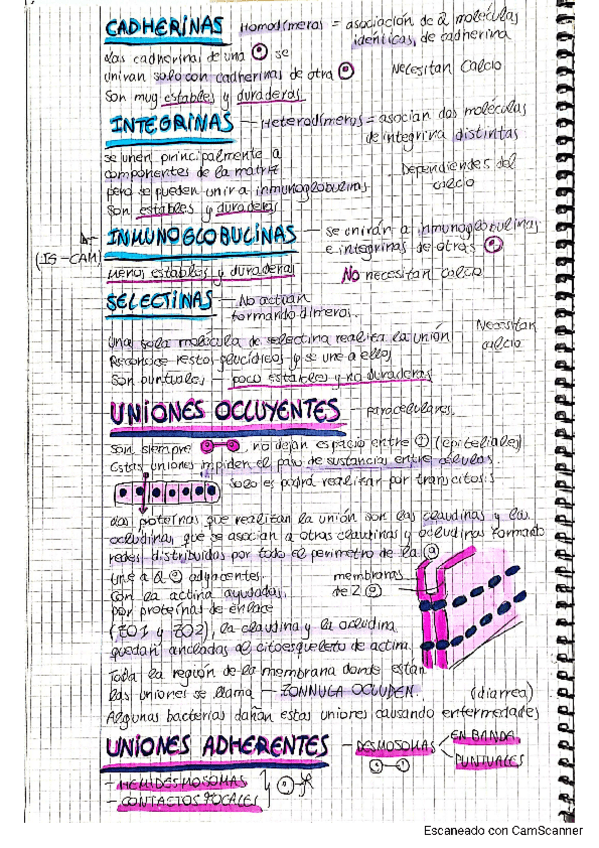 CADHERINAS Homodímeros = asociación de 2 moléculas
idénticas, de cadherina
Las cadherinas de una se
unirán solo con cadherinas de otra
Necesitan calcio
Son muy estables y duraderas
INTEGRINAS - Heterodímeros = asocian dos moléculas
de integrina distintas
Se unen principalmente a
componentes de la matriz
pero se pueden unir a inmunoglobulinas
Dependientes del
calcio
Son estables y duraderas
INMUNOGLOBULINAS - se unirán a inmunoglobulinas
e integrinas de otras
(IG-CAM)
Menos estables y duraderas
No necesitan calcio
SELECTINAS - No actúan
formando dímeros.
Una sola molécula de selectina realiza la unión
Necesitan
calcio
Reconoce restos glucídicos y se une a ellos
Son puntuales - poco estables y no duraderas
UNIONES OCLUYENTES - paracelulares.
Son siempre no dejan espacio entre (epiteliales)
Estas uniones impiden el paso de sustancias entre células.
Solo es podrá realizar por transcitosis
Las proteínas que realizan la unión son las claudinas y las
ocludinas, que se asocian a otras claudinas y ocludinas formando
redes distribuidas por todo el perímetro de la
une a 2 adyacentes.
membranas
de 2
Con la actina ayudadas
por proteínas de enlace
(ZO1 y ZO2), la claudina y la ocludina
quedan ancladas al citoesqueleto de actina.
Toda la región de la membrana donde están
las uniones se llama - ZONNULA OCLUDEN.
(diarrea)
Algunas bacterias dañan estas uniones causando enfermedades
UNIONES ADHERENTES - DESMOSOMAS
EN BANDA
PUNTUALES
- HEMIDESMOSOMAS
- CONTACTOS FOCALES
Escaneado con CamScanner